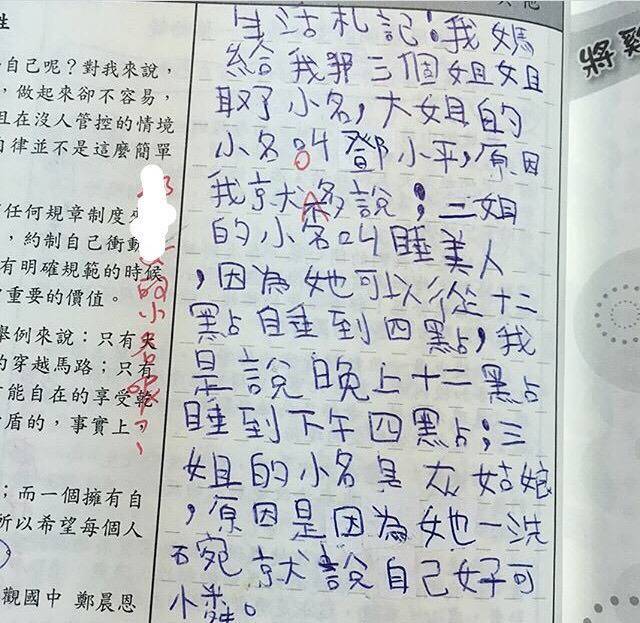 性
自己呢?對我來說,
,做起來卻不容易,
且在沒人管控的情境
自律並不是這麼簡單
任何規章制度
,約制自己衝動
有明確規範的時候
重要的價值。
舉例來說:只有
的穿越馬路;只有
能自在的享受乾
盾的,事實上,
;而一個擁有自
所以希望每個人
觀國中 鄭晨恩
的小名
生活札記:我媽
給我那三個姐姐
取了小名,大姐的
小名叫鄧小平,原因
我就不多說;二姐
的小名叫睡美人
,因為她可以從十二
點睡到四點,我
是說晚上十二點
睡到下午四點;三
姐的小名是灰姑娘
,原因是因為她一洗
碗就說自己好可
憐。
將雞